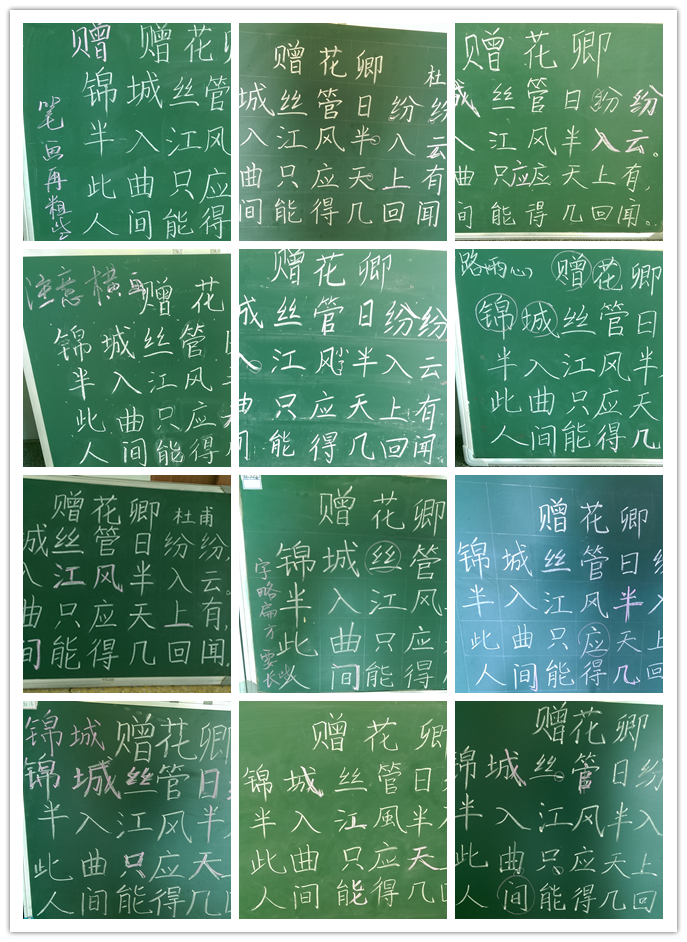 赠 赠花
锦城丝管
半入江风
此曲只应
人间能得
笔画再粗些
赠花卿
杜
城丝管日纷纷
入江风半入云
曲只应天上有
间能得几回闻
赠花卿
丝管日纷纷
入江风半入云。
曲只应应天上有,
间能得几回闻。
注意横画
赠花
锦城丝管
半入江风
此曲只应
人间能得
赠花卿
城丝管日纷纷
入江风半半入云
曲只应天上有
间能得几回闻
路雨心
赠花卿
锦城丝管日
半入江风半
此曲只应天
人间能得几
赠花卿 杜甫
城丝管日纷纷,
入江风半入云。
曲只应天上有,
间能得几回闻。
赠花卿
锦城丝管
半入江风
此曲只应
人间能得
字略扁方
要长
赠花卿
锦城丝管日纷
半入江风半入
此曲只应天上
人间能得几回
锦城赠花卿
锦城丝管日
半入江风半
此曲只应天
人间能得几
赠花卿
锦城丝管日
半入江風半
此曲只应天
人间能得几
赠花卿
锦城丝管日纷
半入江风半入
此曲只应天上
人间能得几回